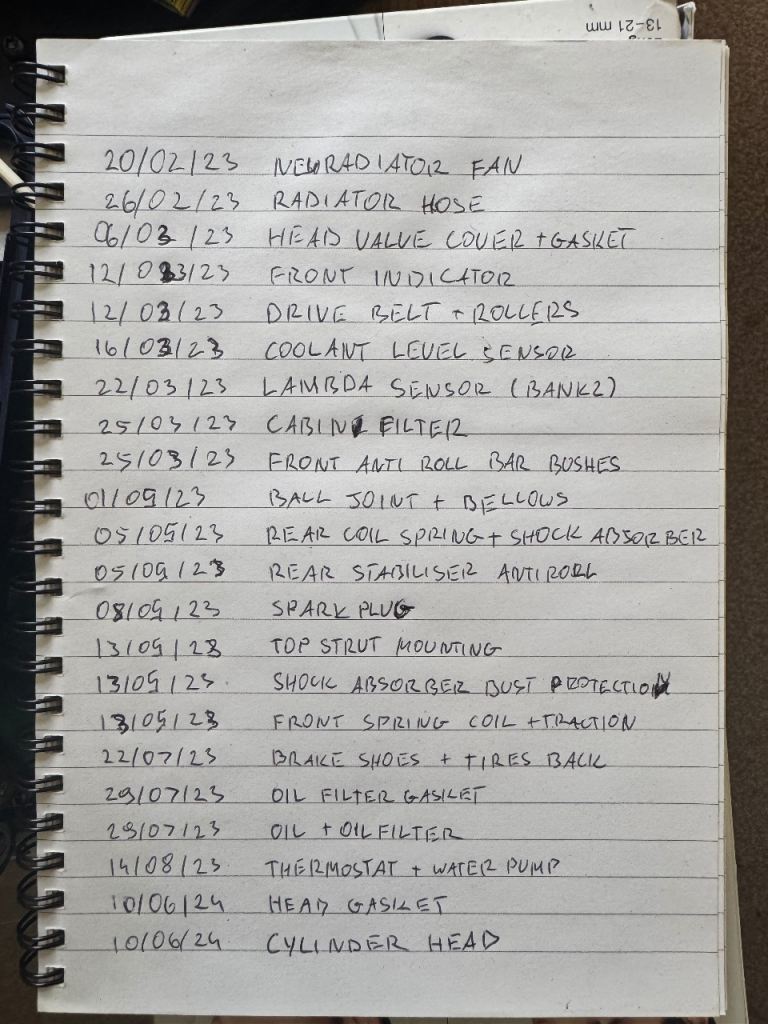 13-21 mm
20/02/23 NEW RADIATOR FAN
26/02/23 RADIATOR HOSE
06/03/23 HEAD VALVE COVER + GASKET
12/03/23 FRONT INDICATOR
12/03/23 DRIVE BELT + ROLLERS
16/03/23 COOLANT LEVEL SENSOR
22/03/23 LAMBDA SENSOR (BANK2)
25/03/23 CABIN FILTER
25/03/23 FRONT ANTI ROLL BAR BUSHES
01/05/23 BALL JOINT + BELLOWS
05/05/23 REAR COIL SPRING + SHOCK ABSORBER
05/05/23 REAR STABILISER ANTIROLL
08/05/23 SPARK PLUG
13/05/23 TOP STRUT MOUNTING
13/05/23 SHOCK ABSORBER DUST PROTECTION
13/05/23 FRONT SPRING COIL + TRACTION
22/07/23 BRAKE SHOES + TIRES BACK
29/07/23 OIL FILTER GASKET
29/07/23 OIL + OIL FILTER
14/08/23 THERMOSTAT + WATER PUMP
10/06/24 HEAD GASKET
10/06/24 CYLINDER HEAD